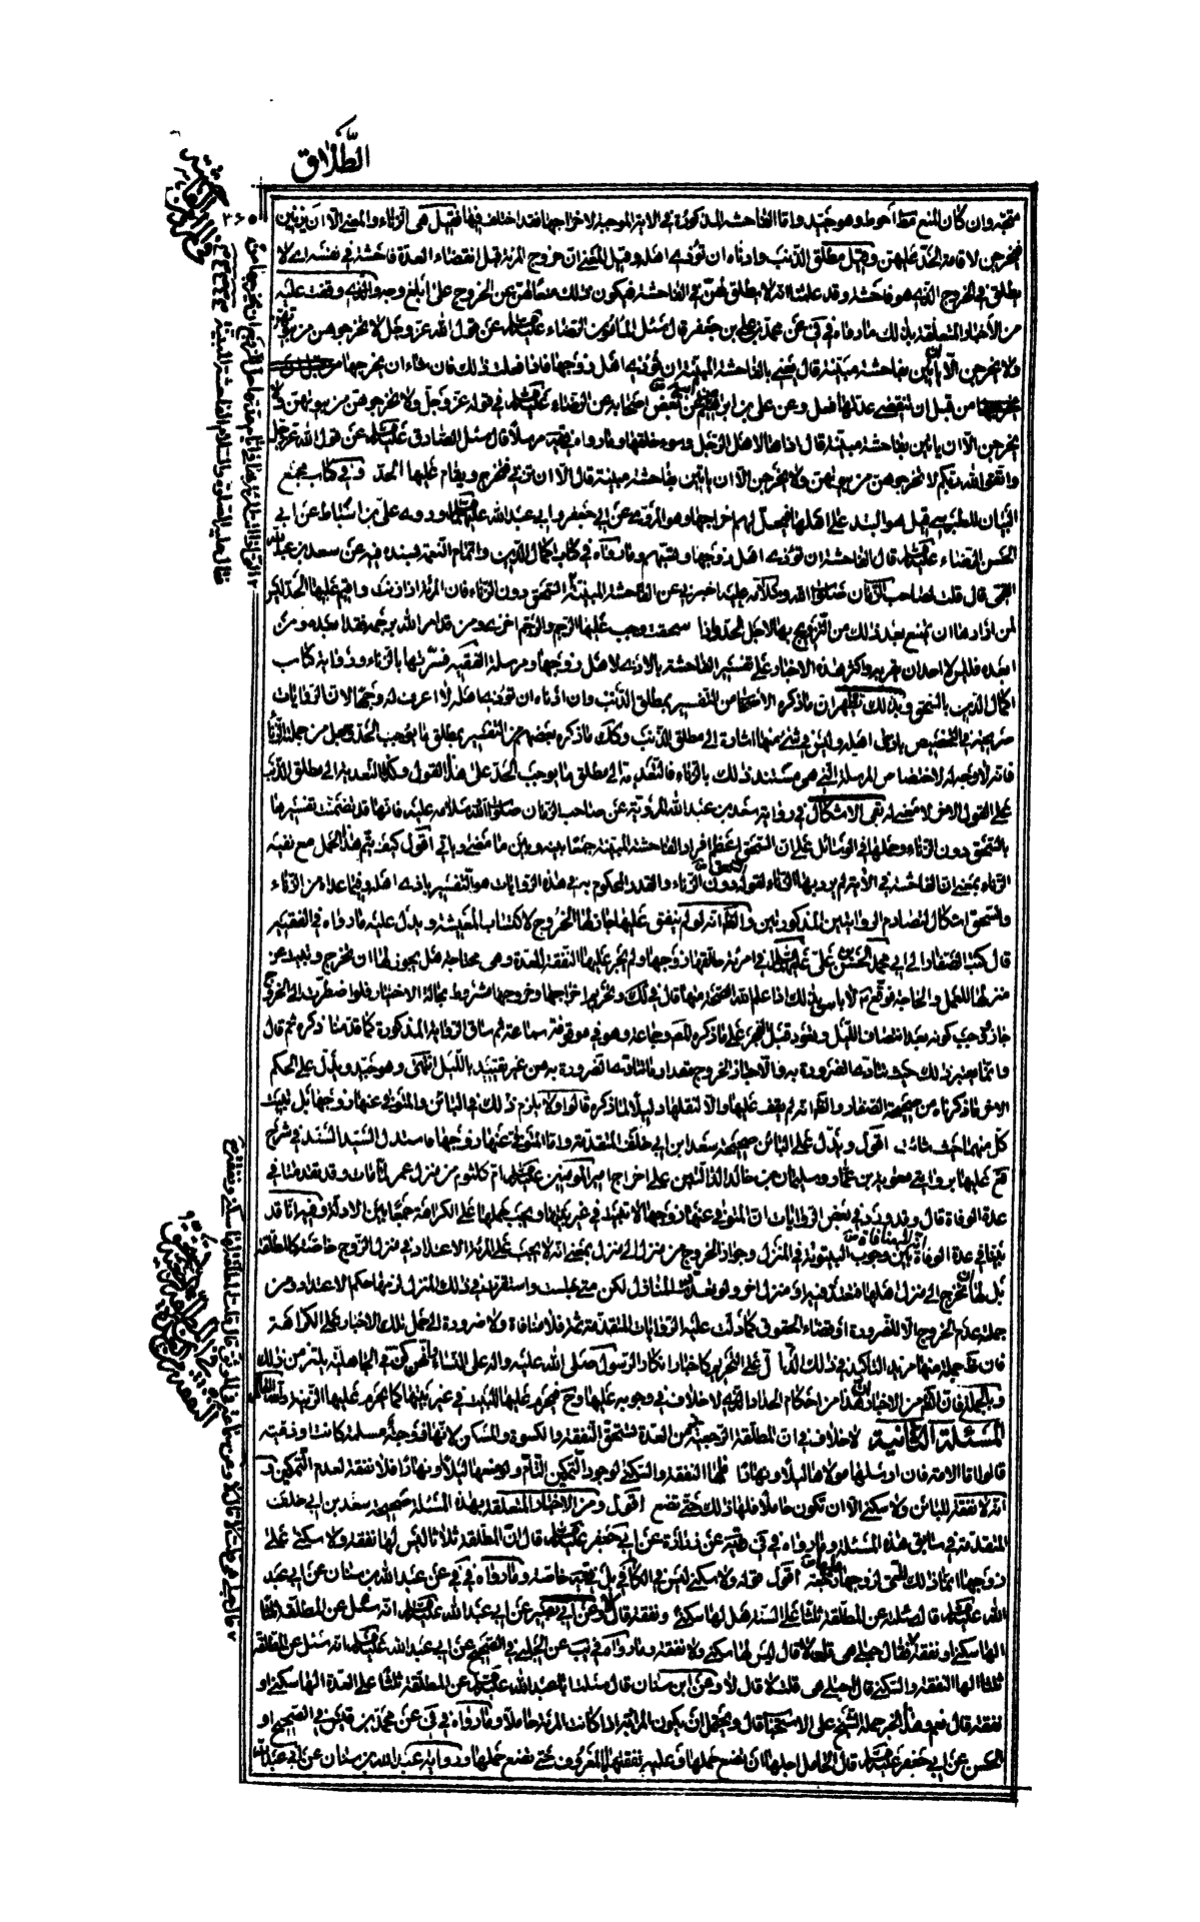 الطلاق
٣٦٥
مقيد وان كان المنع مط أحوط وهو جيد واما الفاحشة المذكورة في الاية الموجبة لاخراجها فقد اختلف فيها فقيل هى الزناء والمعنى الا ان يزنين
فيخرجن لاقامة الحد عليهن وقيل مطلق الذنب وادناه ان تؤذى اهله وقيل المعنى ان خروج المرئة قبل انقضاء العدة فاحشة في نفسه اى لا
يطلق في الخروج الذى هو فاحشة وقد علمنا انه لا يطلق لهن في الفاحشة فيكون ذلك منعا لهن عن الخروج على ابلغ وجه والذى وقفت عليه
من الأخبار المتعلقة بذلك ما رواه في في عن محمد بن علي بن جعفر قال سئل المأمون الرضاء عليه السلام عن قول الله عز وجل لا تخرجوهن من بيوتهن
ولا يخرجن الا ان يأتين بفاحشة مبينة قال يعنى بالفاحشة المبينة ان تؤذى اهل زوجها فاذا فعلت ذلك فان شاء ان يخرجها
من قبل ان تنقضى عدتها فعل وعن علي بن ابراهيم عن بعض اصحابه عن الرضاء عليه السلام في قوله عز وجل ولا تخرجوهن من بيوتهن ولا
يخرجن الا ان يأتين بفاحشة مبينة قال اذاها لاهل الرجل وسوء خلقها وما رواه في يه مرسلا قال سئل الصادق عليه السلام عن قول الله عز وجل
واتقوا الله ربكم لا تخرجوهن من بيوتهن ولا يخرجن الا ان يأتين بفاحشة مبينة قال الا ان تزنى فتخرج ويقام عليها الحد وفي كتاب مجمع
البيان للطبرسي قيل هو البذاء على اهلها فيحل لهم اخراجها وهو المروى عن ابي جعفر وابي عبد الله عليهما السلام وروى علي بن اسباط عن ابي
الحسن الرضاء عليه السلام قال الفاحشة ان تؤذى اهل زوجها وتسبهم وما رواه في كتاب اكمال الدين واتمام النعمة بسنده فيه عن سعد بن عبد الله
القمى قال قلت لصاحب الزمان صلوات الله وسلامه عليه اخبرنى عن الفاحشة المبينة قال السحق دون الزناء فان المرئة اذا زنت واقيم عليها الحد ليس
لمن ارادها ان يمتنع بعد ذلك من التزويج بها لاجل الحد واذا سحقت وجب عليها الرجم والرجم اخزى ومن قد امر الله برجمه فقد ابعده ومن
ابعده فليس لاحد ان يقربه واكثر هذه الاخبار على تفسير الفاحشة بالاذى لاهل زوجها ومرسلة الفقيه فسرتها بالزناء ورواية كتاب
اكمال الدين بالسحق وبذلك يظهر ان ما ذكره الأصحاب من التفسير بمطلق الذنب وان ادناه ان تؤذى اهله لا اعرف له وجها لان الروايات
صريحة في التخصيص باذى اهله وليس في شئ منها اشارة الى مطلق الذنب وكذلك ما ذكره بعضهم من التفسير بمطلق ما يوجب الحد وجعل من جملته الزناء
فانه لا وجه له لاختصاص المرسلة التي هي مستند ذلك بالزناء فالتعدية الى مطلق ما يوجب الحد على هذا القول وكذا التعدية الى مطلق الذنب
على القول الاخر لا معنى له بقى الاشكال في رواية سعد بن عبد الله المروية عن صاحب الزمان صلوات الله وسلامه عليه فانها قد تضمنت تفسيرها
بالسحق دون الزناء وحملها في الوسائل على ان السحق اعظم افراد الفاحشة المبينة جمعا بينه وبين ما مضى وياتى اقول كيف يتم هذا الحمل مع نفيه
الزناء بمعنى ان الفاحشة في الآية لم يرد بها الزناء لقوله السحق دون الزناء والقدر المحكوم به في هذه الروايات هو التفسير باذى اهله وفيما عداه من الزناء
والسحق اشكال لتصادم الروايتين المذكورتين والظ انه لو لم ينفق عليها جاز لها الخروج لاكتساب المعيشة ويدل عليه ما رواه في الفقيه
قال كتب الصفار الى ابي محمد الحسن بن علي عليهما السلام في امرئة طلقها زوجها ولم يجر عليها النفقة للعدة وهى محتاجة هل يجوز لها ان تخرج وتبيت عن
منزلها للعمل والحاجة فوقع ع لا بأس بذلك اذا علم الله الصحة منها قال في لك وتحريم اخراجها وخروجها مشروط بحالة الاختيار فلو اضطرت الى الخروج
جاز ويجب كونه بعد انتصاف الليل وتعود قبل الفجر على ما ذكره المصنف وجماعة وهو في موقوفة سماعة ثم ساق الرواية المذكورة كما قدمنا ذكره ثم قال
وانما يعتبر ذلك حيث تتادى الضرورة به والا جاز الخروج مقدار ما تتادى الضرورة به من غير تقييد بالليل انتهى وهو جيد ويدل على الحكم
الاخر ما ذكرناه من صحيحة الصفار والظ انه لم يقف عليها والا لنقلها دليلا لما ذكره قالوا ولا يلزم ذلك في البائن والمتوفى عنها زوجها بل تبيت
كل منهما حيث شائت اقول ويدل على البائن صحيحة سعد ابن ابي خلف المتقدمة واما المتوفى عنها زوجها فاستدل السيد السند في شرح
فع عليها بروايتى معوية بن عمار وسليمان بن خالد الدالتين على اخراج امير المؤمنين عليه السلام ام كلثوم من منزل عمر لما مات وقد تقدمتا في
عدة الوفاة قال وقد ورد في بعض الروايات ان المتوفى عنها زوجها لا تبيت في غير بيتها ويجب حملها على الكراهة جمعا بين الادلة وفيه انا قد
بينا في عدة الوفاة انه لا منافاة بين وجوب البيتوتة في المنزل وجواز الخروج من منزل الى منزل بمعنى انه لا يجب على المرئة الاعتداد في منزل الزوج خاصة كالمطلقة
بل لها ان تخرج الى منزل اهلها فتعتد فيه او منزل اخر ولو تعددت المنازل لكن متى جلست واستقرت في ذلك المنزل لزمها حكم الاعتداد ومن
جملته عدم الخروج الا للضرورة او قضاء الحقوق كما دلت عليه الروايات المتقدمة ثمة فلا منافاة ولا ضرورة الى حمل تلك الاخبار على الكراهة
فان في جملة منها مزيد التأكيد في ذلك الدال على التحريم كاخبار انكار الرسول صلى الله عليه واله على النساء بانهن كن في الجاهلية يلتزمن ذلك
وبالجملة فان المفهوم من الاخبار ان هذا من احكام الحداد الذى لا خلاف في وجوبه عليها وح فيحرم عليها المبيت في غير بيتها كما يحرم عليها الزينة والله العالم
المسئلة الثانية لا خلاف في ان المطلقة الرجعية زمن العدة تستحق النفقة والكسوة والمسكن لانها زوجة مسلمة كانت او ذمية
قالوا اما الامة فان ارسلها مولاها ليلا ونهارا فلها النفقة والسكنى لوجود التمكين التام ولو منعها ليلا او نهارا فلا نفقة لعدم التمكين و
انه لا نفقة للبائن ولا سكنى الا ان تكون حاملا فلها ذلك حتى تضع اقول ومن الاخبار المتعلقة بهذه المسئلة صحيحة سعد بن ابي خلف
المتقدمة في سابق هذه المسئلة وما رواه في في عن زرارة عن ابي جعفر عليه السلام قال ان المطلقة ثلاثا ليس لها نفقة ولا سكنى على
زوجها انما ذلك للتى لزوجها عليها رجعة اقول قوله ولا سكنى ليس في الكافي بل في يب خاصة وما رواه في في عن عبد الله بن سنان عن ابي عبد
الله عليه السلام قال سئلته عن المطلقة ثلثا على السنة هل لها سكنى او نفقة قال لا وعن ابي بصير عن ابي عبد الله عليه السلام انه سئل عن المطلقة ثلثا
الها سكنى او نفقة فقال حبلى هى قلت لا قال ليس لها سكنى ولا نفقة وما رواه في يب عن الحلبى في الصحيح عن ابي عبد الله عليه السلام انه سئل عن المطلقة
ثلثا الها النفقة والسكنى قال احبلى هى قلت لا قال لا وعن ابن سنان قال سئلت ابا عبد الله عليه السلام عن المطلقة ثلثا على العدة الها سكنى او
نفقة قال نعم وهذا الخبر حمله الشيخ على الاستحباب قال ويحتمل ان يكون المراد به اذا كانت المرئة حاملا وما رواه في في عن محمد بن قيس في الصحيح او
الحسن عن ابي جعفر عليه السلام قال الحامل اجلها ان تضع حملها وعليه نفقتها بالمعروف حتى تضع حملها ورواية عبد الله بن سنان عن ابي عبد الله